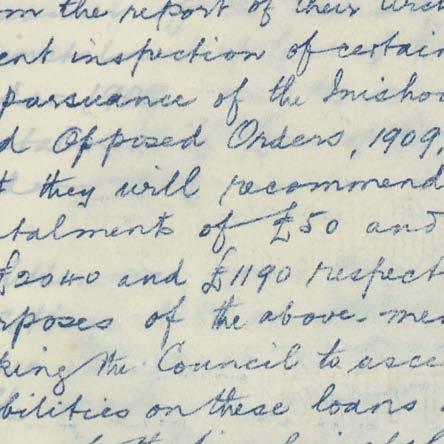 om the report of their Arch
ent inspection of certain
pursuance of the Inishow
d Opposed Orders, 1909,
t they will recommend
talments of £50 and
£2040 and £1190 respect
rposes of the above-men
king the Council to asce
bilities on these loans